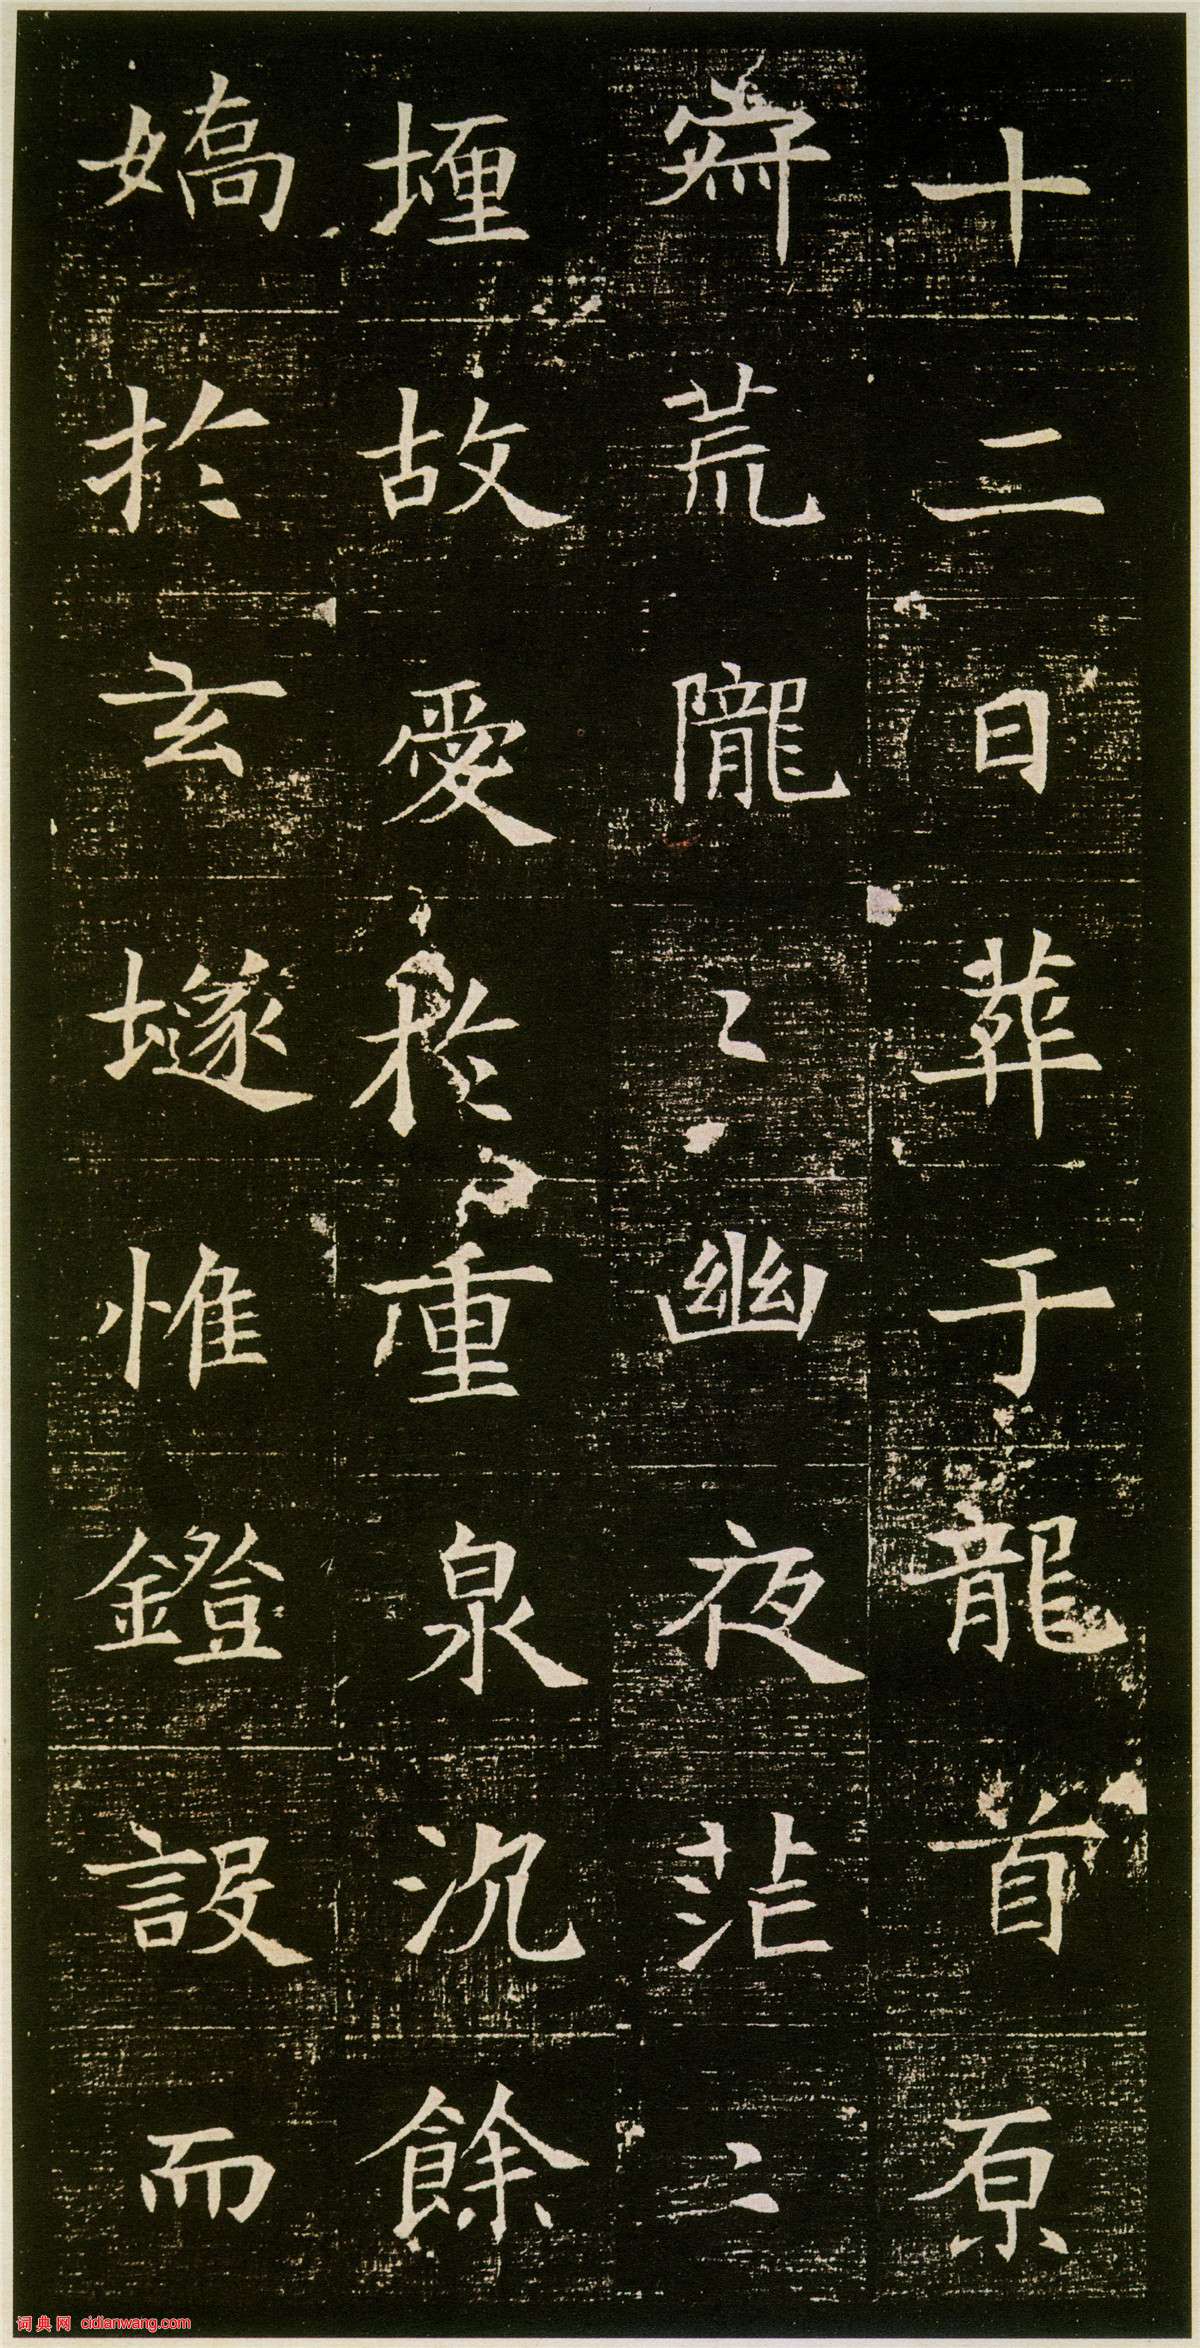 十二日葬于龍首原
荒隴〻幽夜茫〻
埋故愛於重泉沉餘
嬌於玄隧惟鐙設而
词典网 cidianwang.com